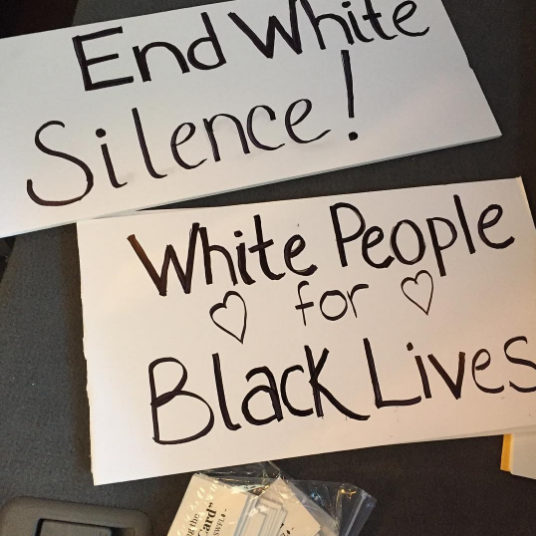 End White
Silence!
White People
for
Black Lives